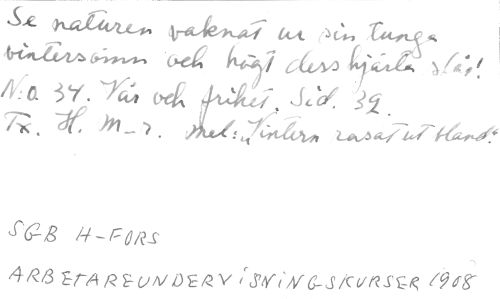 Se naturen vaknat ur sin tunga
vintersömn och högt dess hjärta slår!
N:o 34. Vår och frihet. Sid. 32.
Tx. H. M-r. mel: „Vintern rasat ut bland."
SGB H-FORS
ARBETAREUNDERVISNINGSKURSER 1908